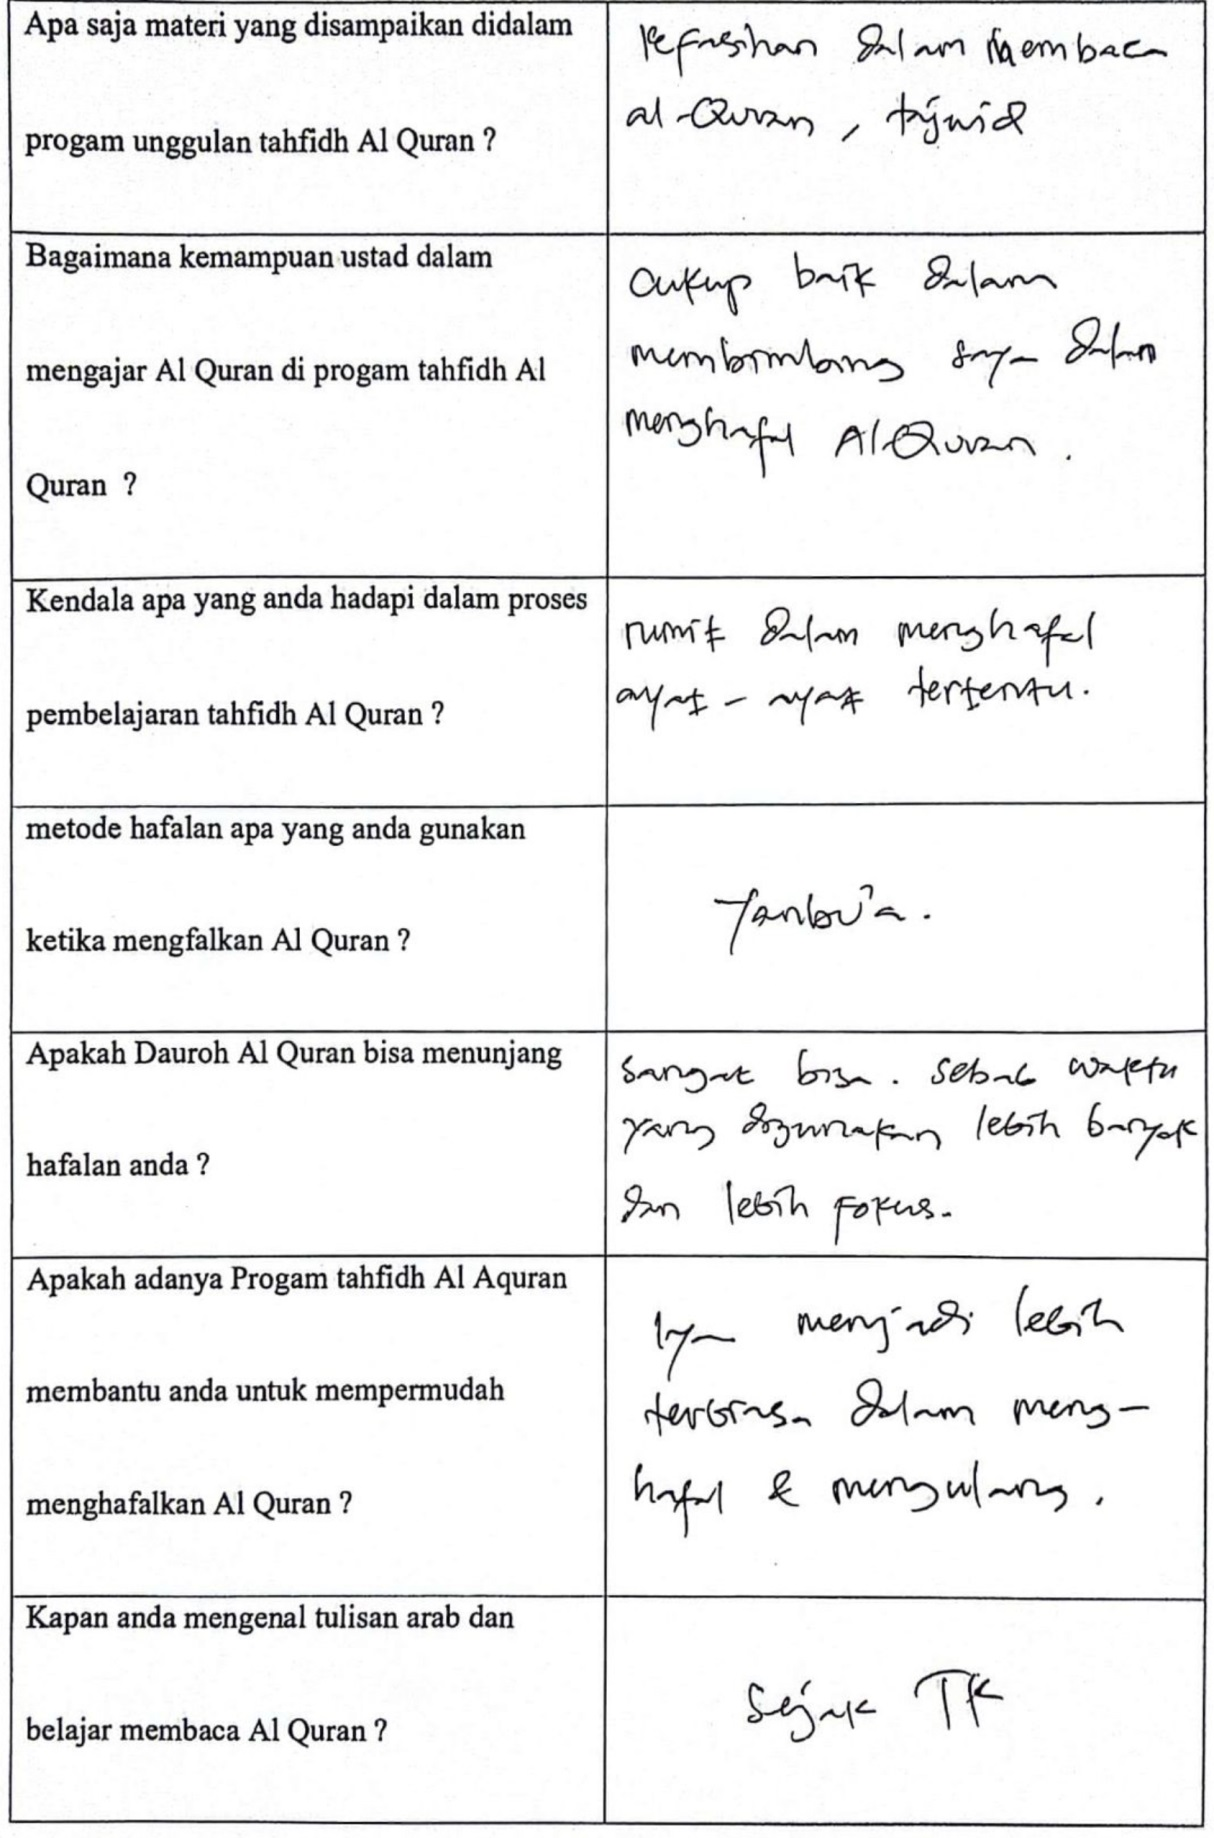 Apa saja materi yang disampaikan didalam
progam unggulan tahfidh Al Quran ?
kefasihan dalam membaca
al-Quran , tajwid
Bagaimana kemampuan ustad dalam
mengajar Al Quran di progam tahfidh Al
Quran ?
cukup baik dalam
membimbing saya dalam
menghafal Al Quran .
Kendala apa yang anda hadapi dalam proses
pembelajaran tahfidh Al Quran ?
rumit dalam menghafal
ayat - ayat tertentu.
metode hafalan apa yang anda gunakan
ketika mengfalkan Al Quran ?
Yanbu'a .
Apakah Dauroh Al Quran bisa menunjang
hafalan anda ?
sangat bisa . sebab waktu
yang digunakan lebih banyak
dan lebih fokus.
Apakah adanya Progam tahfidh Al Aquran
membantu anda untuk mempermudah
menghafalkan Al Quran ?
Iya menjadi lebih
terbiasa dalam meng-
hafal & mengulang .
Kapan anda mengenal tulisan arab dan
belajar membaca Al Quran ?
Sejak TK